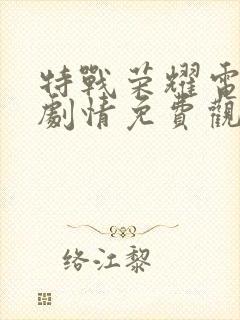 特戰荣耀電
劇情免費觀
络江黎